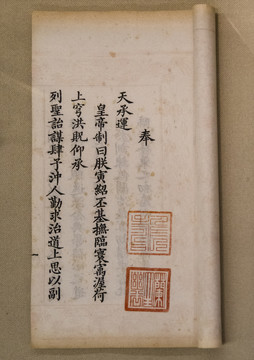 奉
天承運
皇帝制曰朕寅紹丕基撫臨寰寓渥荷
上穹洪貺仰承
列聖詒謀肆予沖人勤求治道上思以副